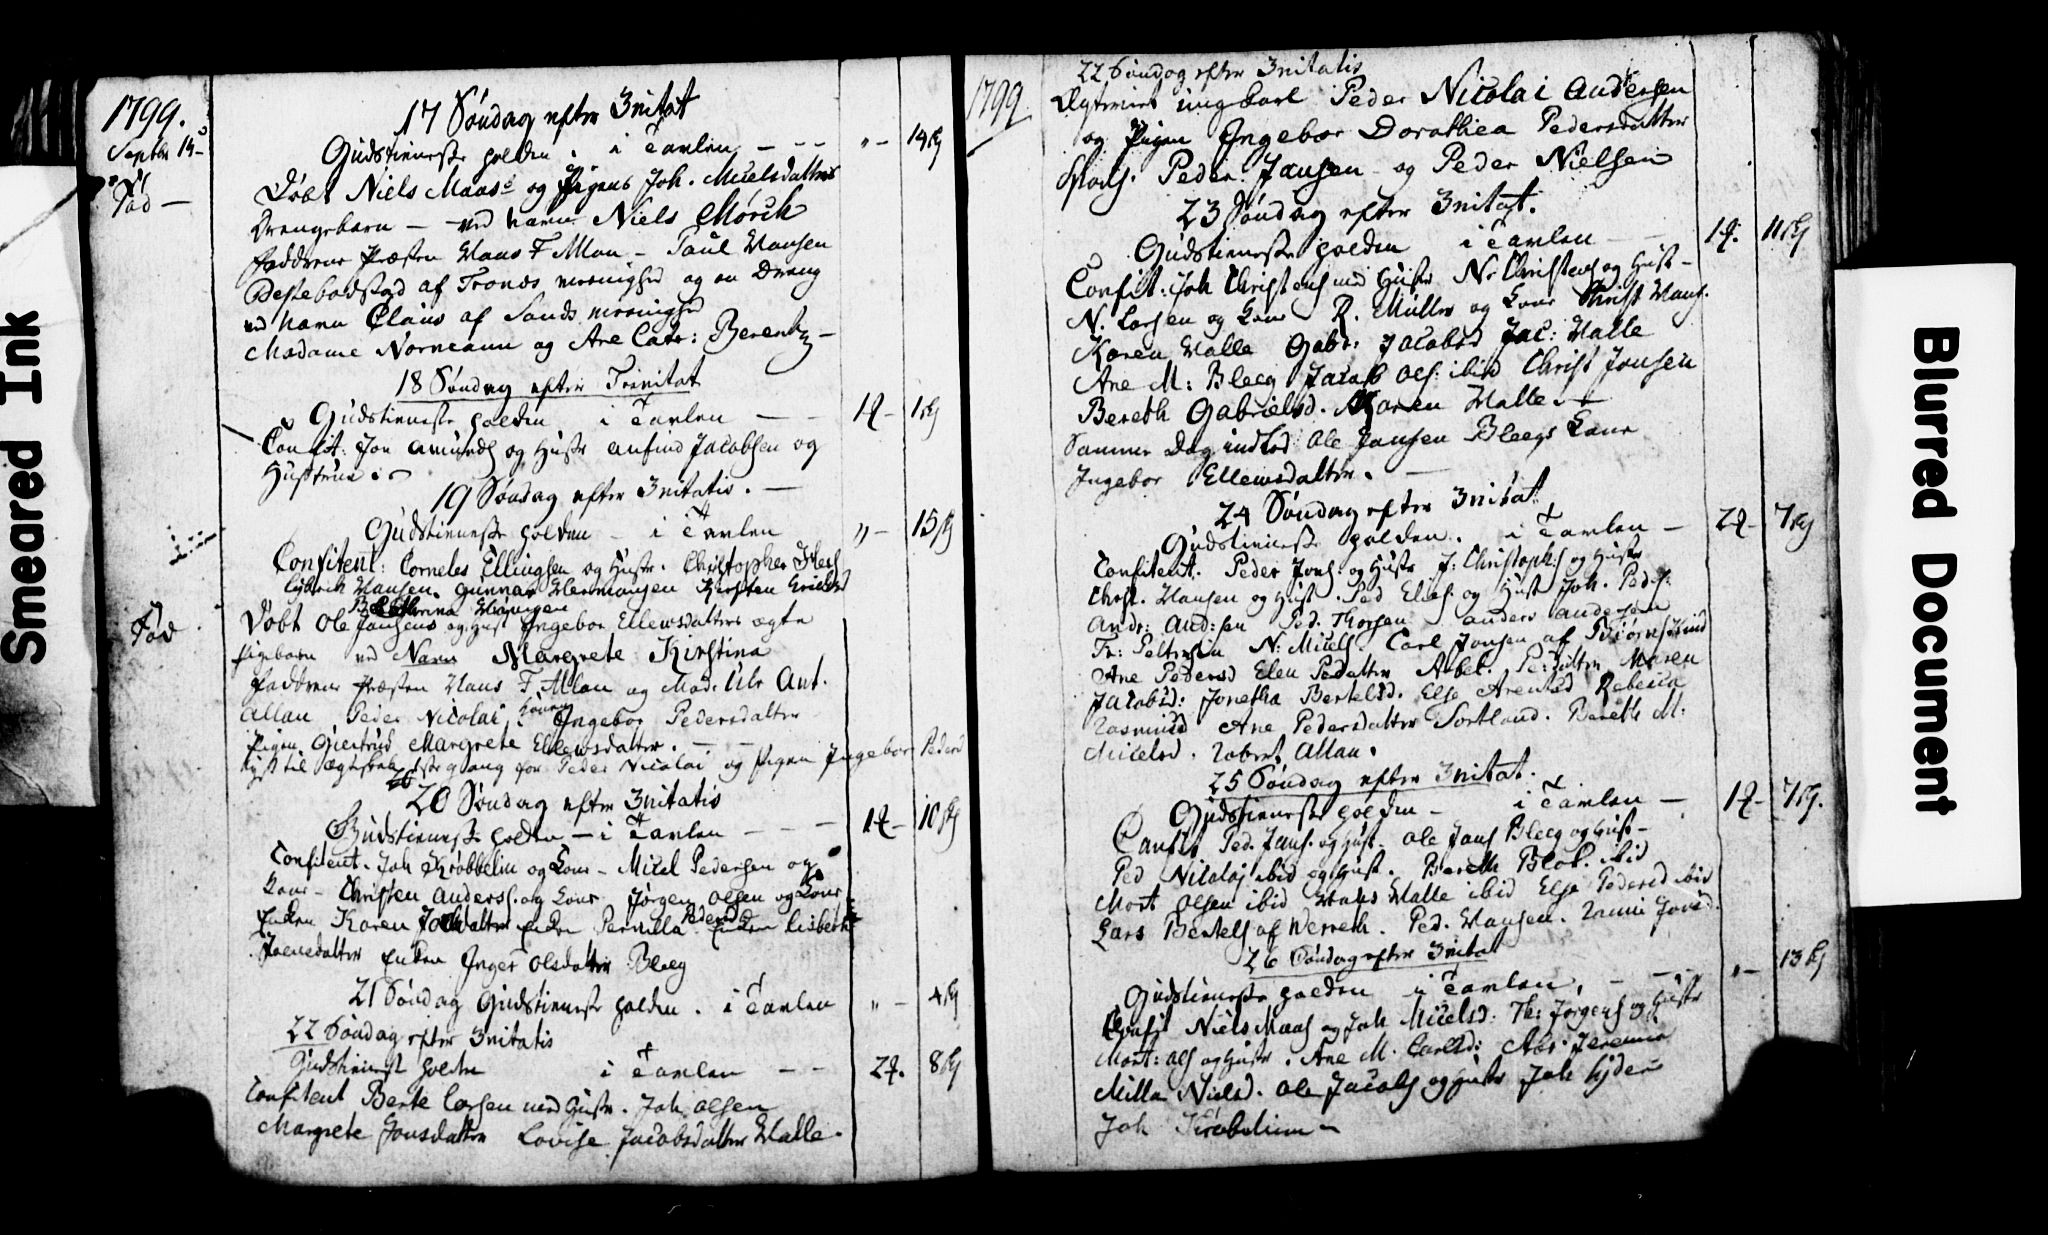 Smeared Ink
1799.
Septbr 15
Fød —
17 Søndag efter 3nitat
Gudstieneste holden . i Tavlen — - - " - 14 ß
Døbt Niels Maas og Pigens Joh. Micelsdatters
Drengebarn — ved navn Niels Mørch
Fadderne Præsten Hans F Allan - Paul Hansen
af Tronds menighed og en Dreng
ved navn Claus af Sands menighed
Madame Normann og Ane Catr: Berentz —
18 Søndag efter Trinitat
Gudstieneste holden i Tavlen — - 1 - 1 ß
Confit: Jon Amunds og Hustr Anfind Jacobsen og
Hustrue
19 Søndag efter 3nitatis . —
Gudstieneste holden - i Tavlen " - 15 ß
Confitent: Corneles Ellingsen og Hustr. Christopher
Hansen. Gunnar Hermansen Kirsten
Fød
Døbt Ole Jansens og Hust Ingebor Ellewsdatters ægte
Pigebarn ved Navn Margrete Kirstina
Fadderne Præsten Hans F. Allan og Mad: Ant.
Allan Peder Nicolai, Ingebor Pedersdatter
Pigen Giertrud Margrete Ellewsdatter. —
Lyst til Ægteskab 1ste gang for Peder Nicolai og Pigen Ingebor Pedersd
20 Søndag efter 3nitatis
Gudstieneste holden — i Tavlen - - — 1 - 10 ß
Confitent. Joh Krøbbelin og Kone - Micel Pedersen og
Kone - Christen Anders. og Kone Jørgen Olsen og Kone
Enken Karen Enken Pernilla Pedersd Enken Lisbeth
Enken Inger Olsdatter Bleeg
21 Søndag Gudstieneste holden . i Tavlen " - 4 ß
22 Søndag efter 3nitatis
Gudstieneste holden i Tavlen - - 2 . 8 ß
Confitent Bente Larsen med Hustr. Joh. Olsen
Margrete Jonsdatter Lovise Jacobsdatter Halle.
1799
22 Søndag efter 3nitatis
Ægteviet ungkarl Peder Nicolai Andersen
og Pigen Ingebor Dorothea Pedersdatter
Spons. Peder Jansen - og Peder Nielsen
23 Søndag efter 3nitat.
Gudstieneste holden i Tavlen - - 1 . 11 ß
Confit: Joh Christens med Hustr N. Christens og Hust-
N. Larsen og Kone R. Müller og Kone Christ Hans.
Karen Halle Gabr. Jacobsd Jac: Halle
Ane M: Bleeg Jacob Ols: ibid Christ Jonsen
Bereth Gabrielsd. Maren Halle. —
Samme Dag indled Ole Jansen Bleegs Kone
Ingebor Ellewsdatter. —
24 Søndag efter 3nitat
Gudstieneste holden. i Tavlen — 2 - 7 ß
Confitent. Peder Jons: og Hustr J: Christoph: og Hustr
Christ. Hansen og Hust. Ped Elias: og Hust Joh. Peds:
Andr: And:sen Ped. Thorsen Anders Andersen
Fr: Peltersen N: Micels. Carl Jonsen af
Ane Pedersd Elen Pedsdatter Abel. Pe:datter Maren
Jacobsd: Jonetha Bertelsd. Else Arentsd Rebecca
Rasmusd Ane Pedersdatter Sortland. Bereth M:
Micelsd. Robert Allan.
25 Søndag efter 3nitat.
Gudstieneste holden - i Tavlen — 1 - 7 ß.
Confit Ped. Jans. og Hust - Ole Jans Bleeg og Hust-
Ped Nicolaj ibid og Hust. Bereth ibid
Mort Olsen ibid Hans Halle ibid Else Pedersd ibid
Lars Bertels af Werreth. Ped. Hansen.
26 Søndag efter 3nitat
Gudstieneste holden i Tavlen, - - - " - 13 ß
Confit Niels Maas og Joh Micelsd: Th: Jørgens og Hustr
Mort: Ols og Hustr. Ane M. Carlsd:
Milla Nielsd. Ole Jacobs og Hustr Joh
Joh Krøbelin —
Blurred Document